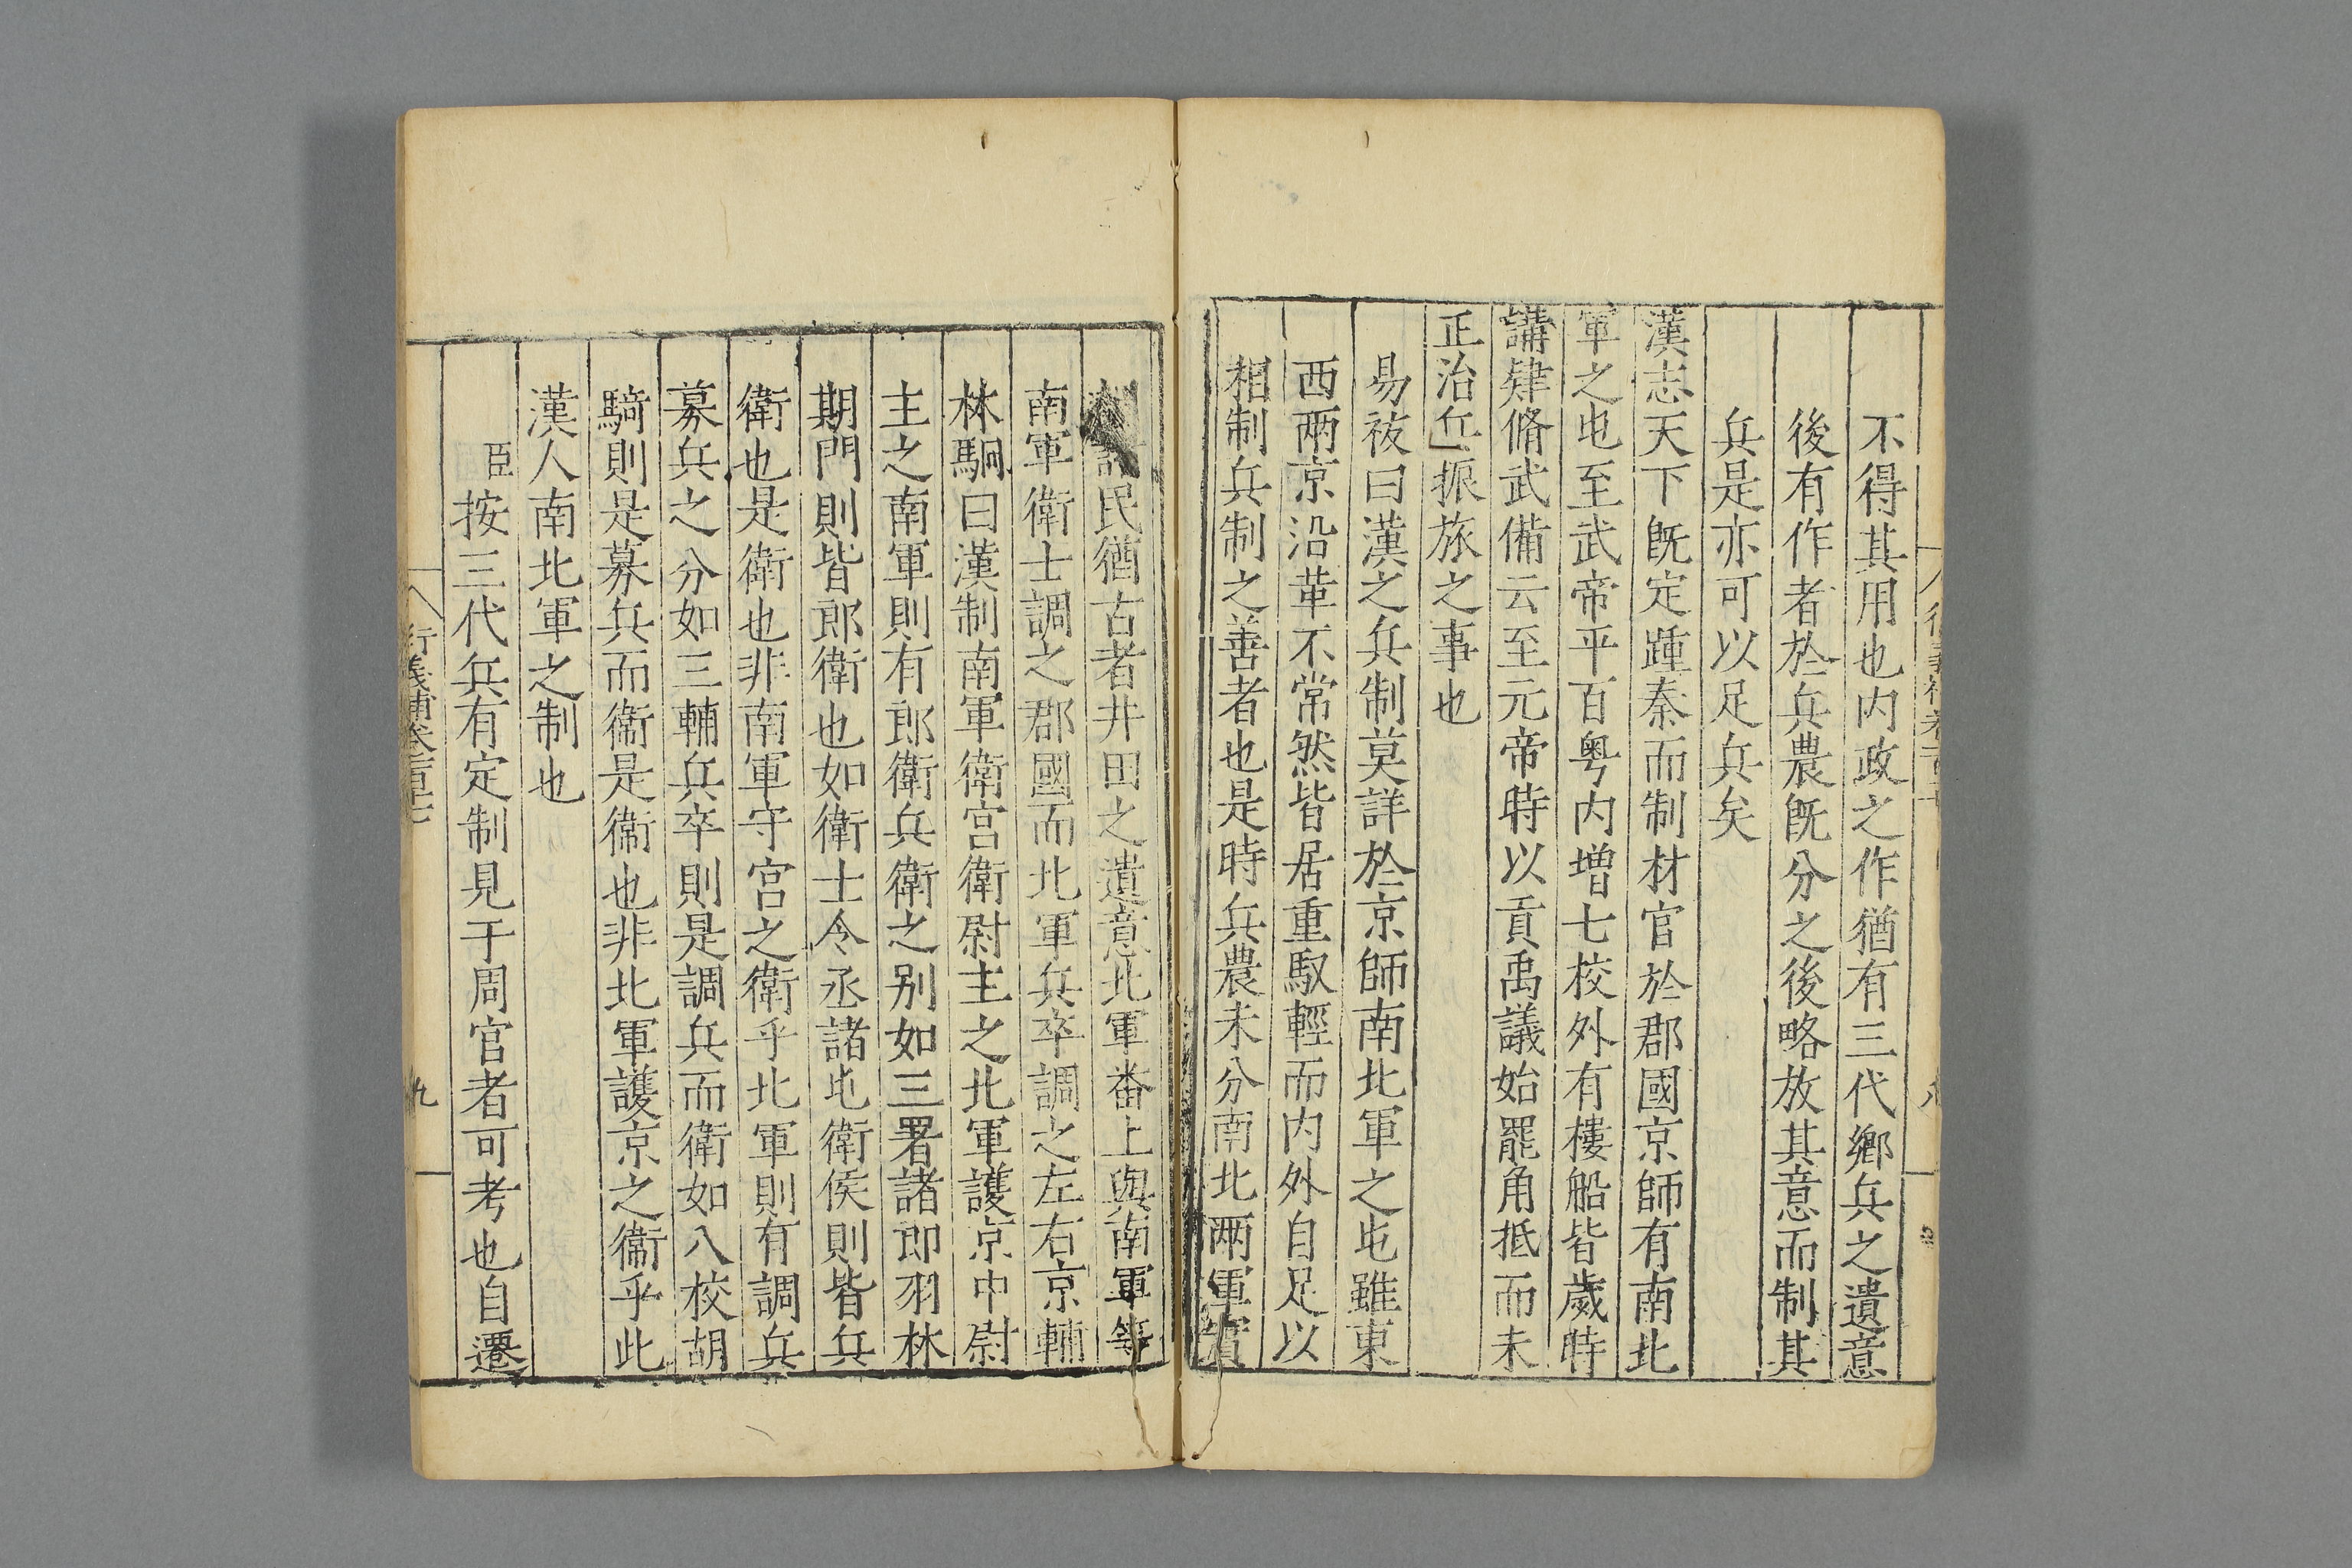 不得其用也内政之作猶有三代鄉兵之遺意
後有作者於兵農旣分之後略放其意而制其
兵是亦可以足兵矣
漢志天下旣定踵秦而制材官於郡國京師有南北
軍之屯至武帝平百粤内増七校外有樓船皆歲時
講肄脩武備云至元帝時以貢禹議始罷角抵而未
正治兵振旅之事也
易祓曰漢之兵制莫詳於京師南北軍之屯雖東
西两京沿革不常然皆居重馭輕而内外自足以
相制兵制之善者也是時兵農未分南北两軍實
民猶古者井田之遺意北軍番上與南軍等
南軍衛士調之郡國而北軍兵卒調之左右京輔
林駉曰漢制南軍衛宫衛尉主之北軍護京中尉
主之南軍則有郎衛兵衛之别如三署諸郎羽林
期門則皆郎衛也如衛士令丞諸屯衛侯則皆兵
衛也是衛也非南軍守宫之衛乎北軍則有調兵
募兵之分如三輔兵卒則是調兵而衛如八校胡
騎則是募兵而衞是衞也非北軍護京之衞乎此
漢人南北軍之制也
臣按三代兵有定制見于周官者可考也自遷
衍義補卷百十七
九